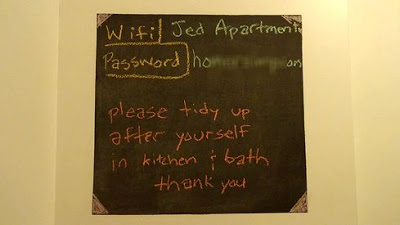 Wifi Jed Apartment
Password
please tidy up
after yourself
in kitchen & bath
thank you